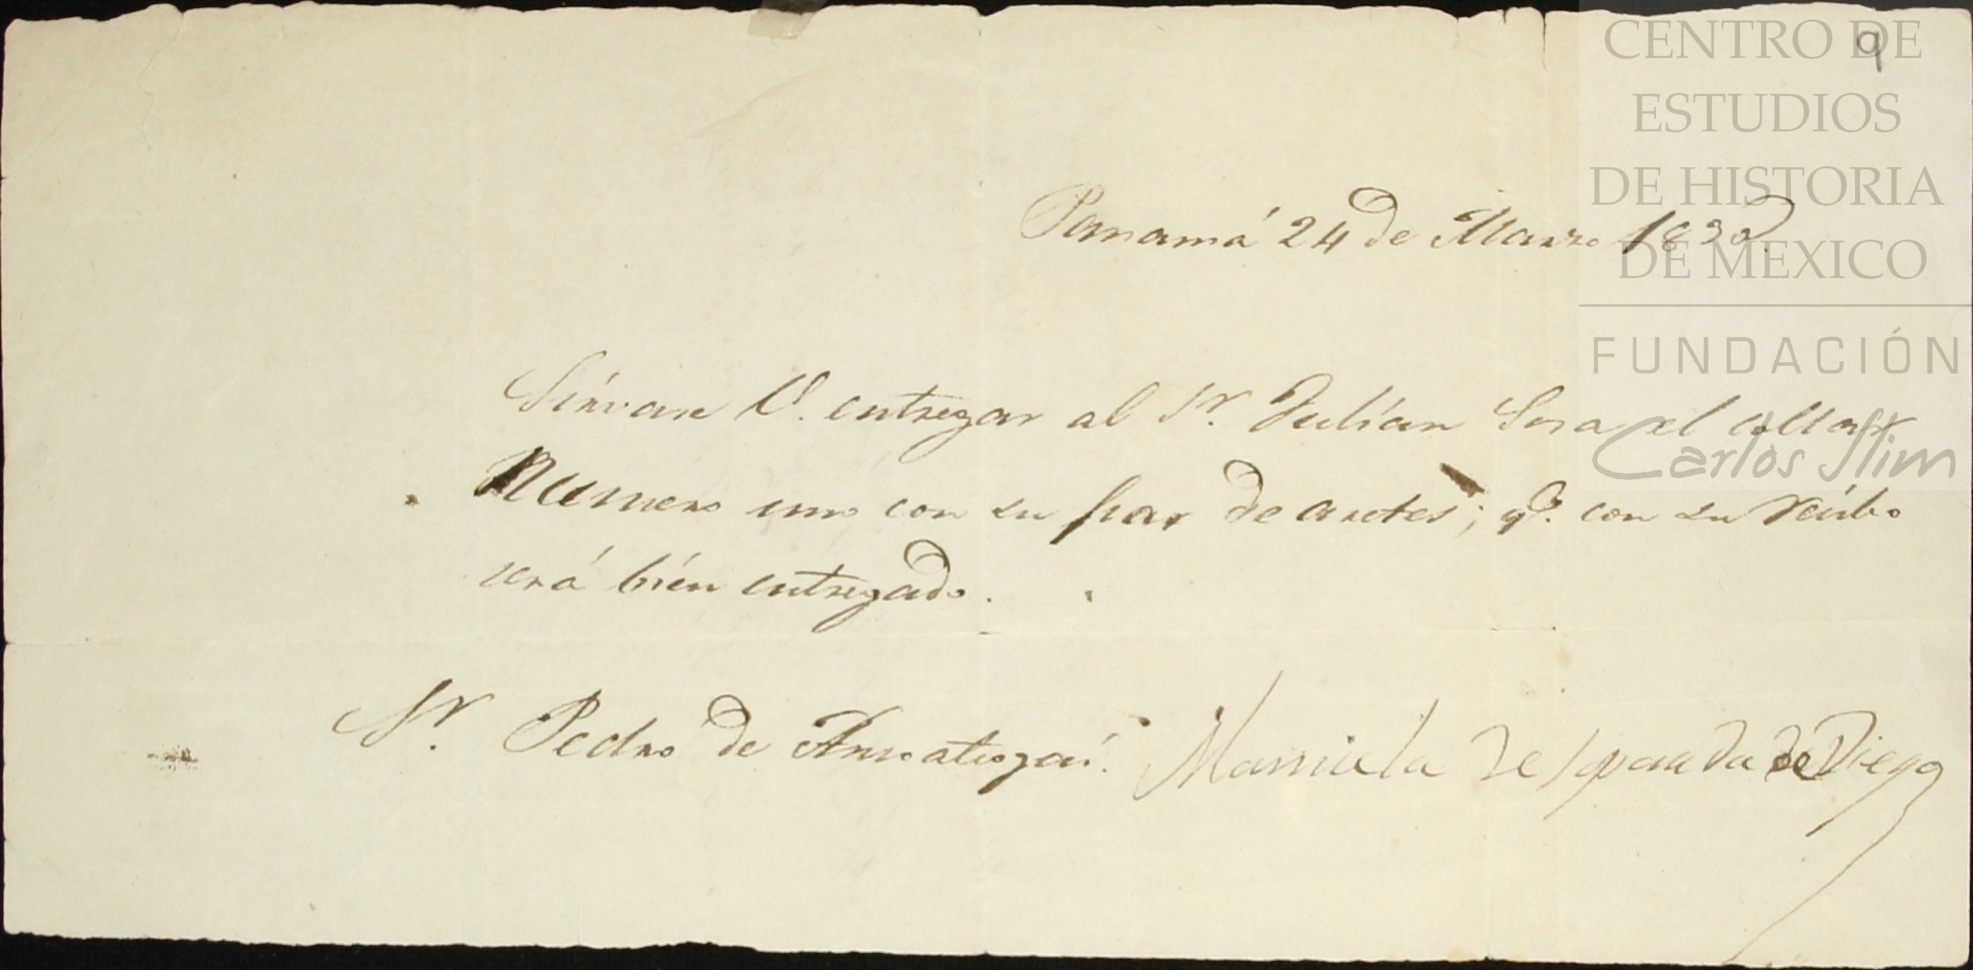 9
CENTRO DE
ESTUDIOS
DE HISTORIA
DE MEXICO
FUNDACIÓN
Carlos Slim
Panamá 24 de Marzo 1832.
Sírvase V. entregar al Sr. Julían Sosa el collar
Numero uno con su par de aretes; qe. con su recibo
será bíen entregado.
Sr. Pedro de Ansoategui. Manuela de Diego